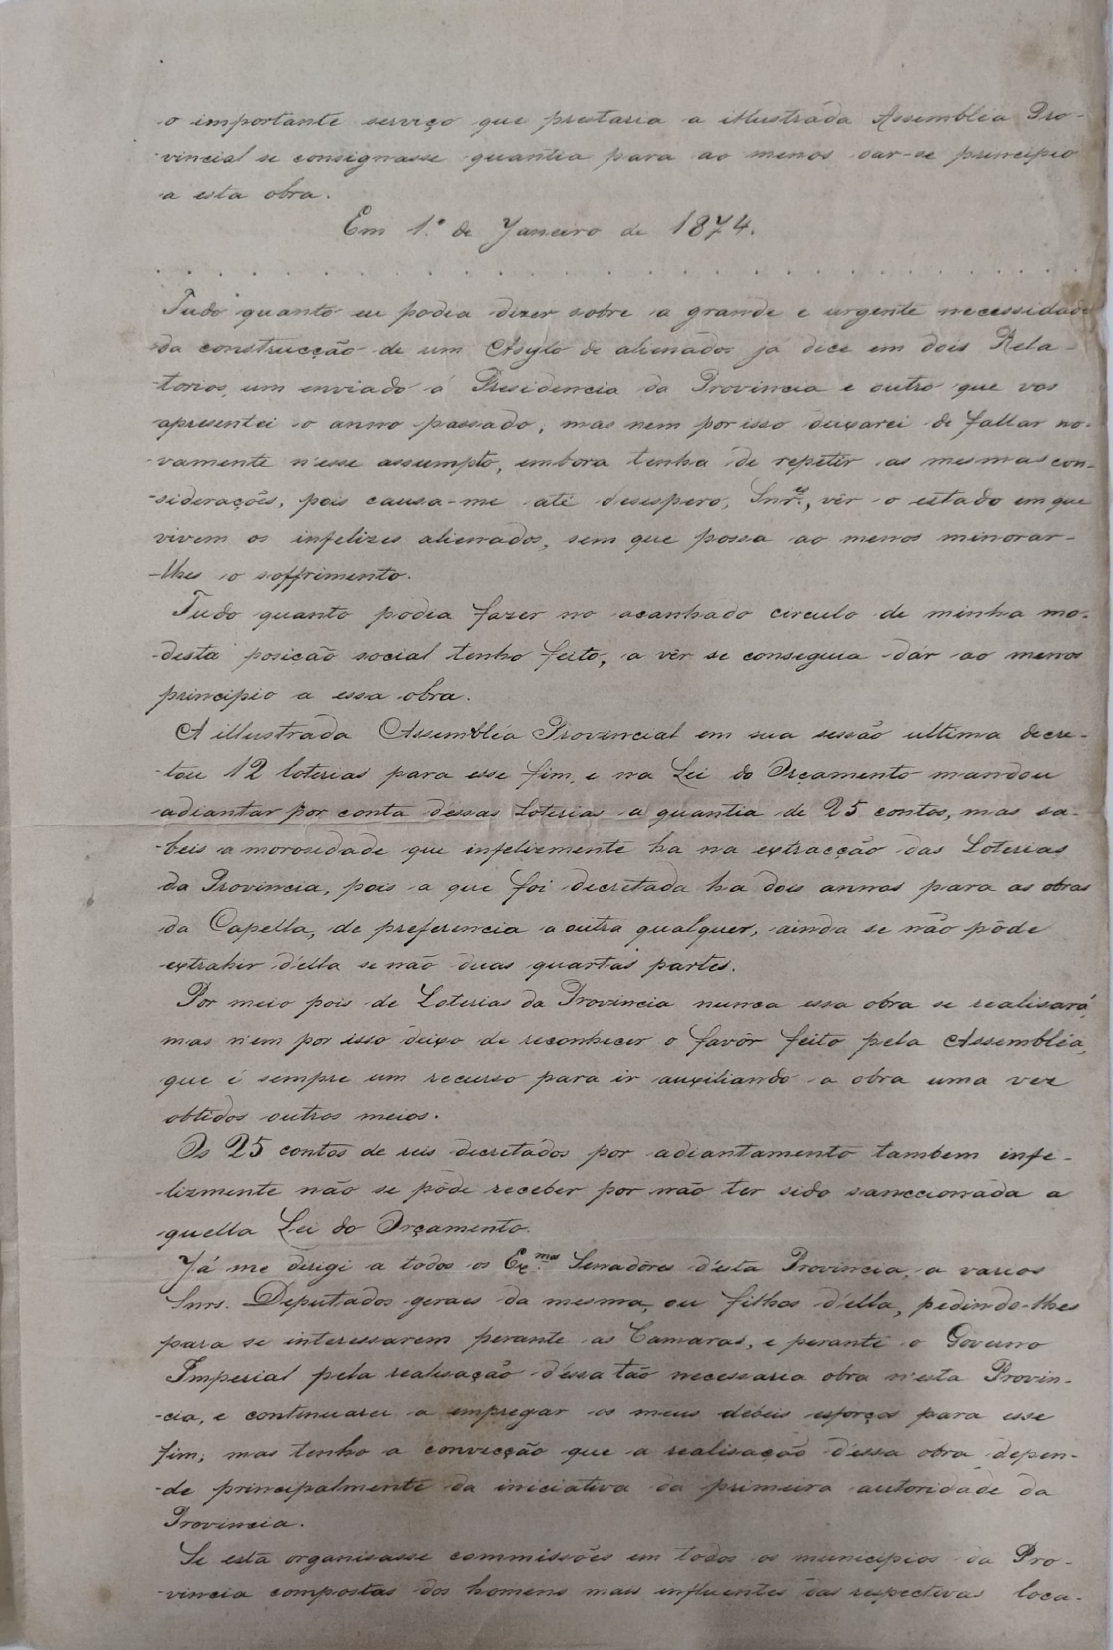 o importante serviço que prestaria a illustrada Assembléa Pro-
vincial se consignasse quantia para ao menos dar-se principio
a esta obra.
Em 1.º de Janeiro de 1874.
. . . . . . . . . . . . . . . . . . . . . .
Tudo quanto eu podia dizer sobre a grande e urgente necessidade
da construcção de um Asylo de alienados já dice em dois Rela-
torios, um enviado á Presidencia da Provincia e outro que vos
apresentei o anno passado, mas nem por isso deixarei de fallar no-
vamente n'esse assumpto, embora tenha de repetir as mesmas con-
-siderações, pois causa-me até desespero, Snr.es, vêr o estado em que
vivem os infelizes alienados, sem que possa ao menos minorar-
-lhes o soffrimento.
Tudo quanto podia fazer no acanhado circulo de minha mo-
-desta posição social tenho feito, a vêr se conseguia dár ao menos
principio a essa obra.
A illustrada Assembléa Provincial em sua sessão ultima decre-
-tou 12 loterias para esse fim, e na Lei do Orçamento mandou
adiantar por conta dessas Loterias a quantia de 25 contos, mas sa-
-beis a morosidade que infelizmente ha na extracção das Loterias
da Provincia, pois a que foi decretada ha dois annos para as obras
da Capella, de preferencia a outra qualquer, ainda se não pôde
extrahir d'ella se não duas quartas partes.
Por meio pois de Loterias da Provincia nunca essa obra se realisará,
mas n'em por isso deixo de reconhecer o favôr feito pela Assembléa,
que é sempre um recurso para ir auxiliando a obra uma vez
obtidos outros meios.
Os 25 contos de reis decretados por adiantamento tambem infe-
-lizmente não se pôde receber por não ter sido sanccionada a
quella Lei do Orçamento.
Já me dirigi a todos os Ex.mos Senadôres d'esta Provincia, a varios
Snrs. Deputados geraes da mesma, ou filhos d'ella, pedindo-lhes
para se interessarem perante as Camaras, e perante o Governo
Imperial pela realisação d'essa tão necessaria obra n'esta Provin-
-cia, e continuarei a empregar os meus débeis esforços para esse
fim; mas tenho a convicção que a realisação d'essa obra depen-
-de principalmente da iniciativa da primeira autoridade da
Provincia.
Se esta organisasse commissões em todos os municipios da Pro-
-vincia compostas dos homens mais influentes das respectivas loca-